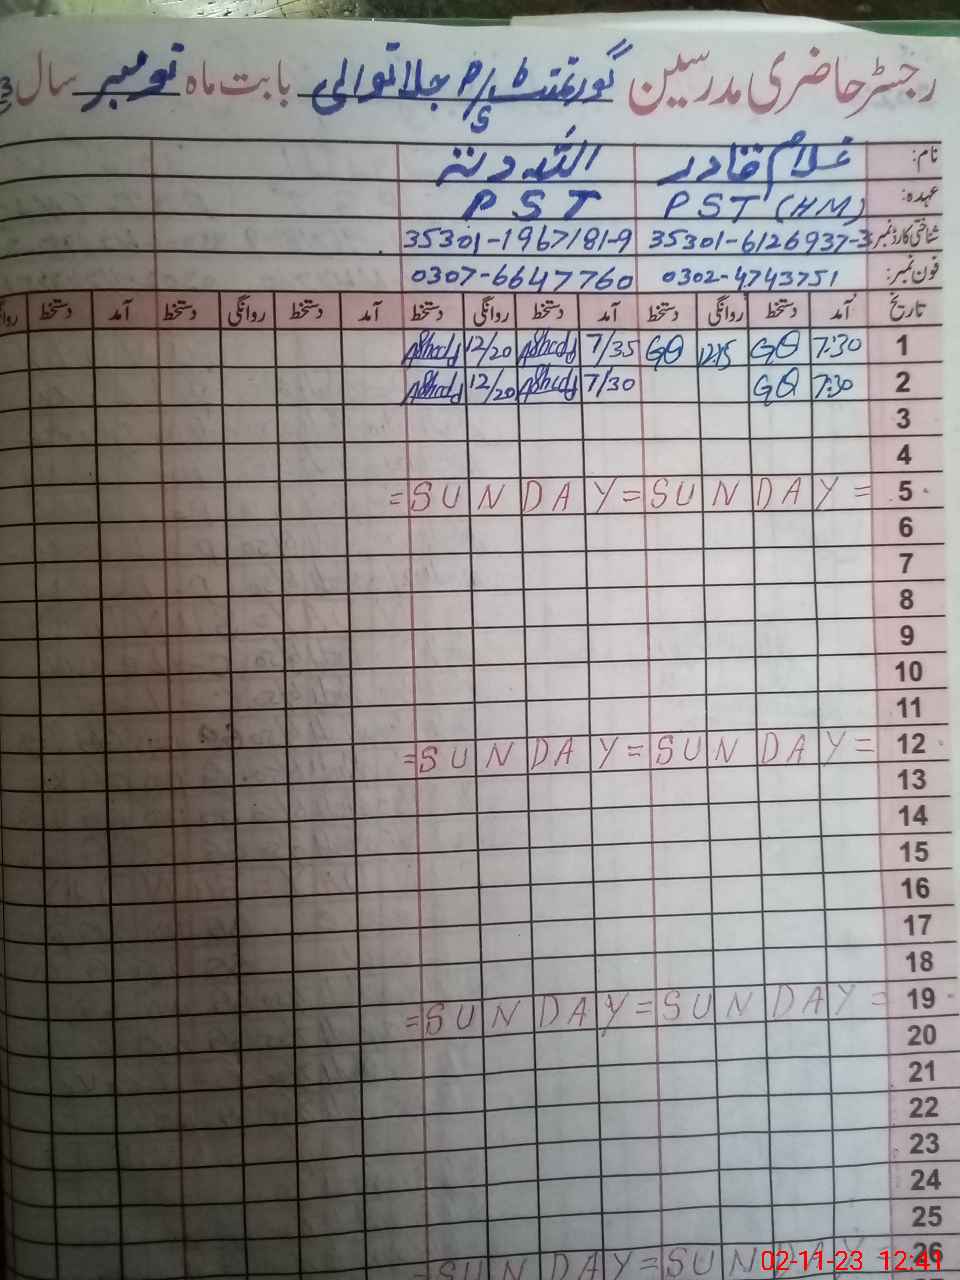 رجسٹر حاضری مدرسین گورنمنٹ P/S جلا توالی بابت ماہ نومبر سال
نام: غلام قادر اللہ دتہ
عہدہ: PST (HM) PST
شناختی کارڈ نمبر 35301-6126937-3 35301-1967181-9
فون نمبر: 0302-4743751 0307-6647760
تاریخ آمد دستخط روانگی دستخط آمد دستخط روانگی دستخط آمد دستخط روانگی دستخط آمد دستخط
1 7:30 GQ 12:15 GQ 7/35 12/20
2 7:30 GQ 7/30 12/20
3
4
5 = SUNDAY = SUNDAY =
6
7
8
9
10
11
12 = SUNDAY = SUNDAY =
13
14
15
16
17
18
19 = SUNDAY = SUNDAY =
20
21
22
23
24
25
26 = SUNDAY = SUNDAY =
02-11-23 12:41